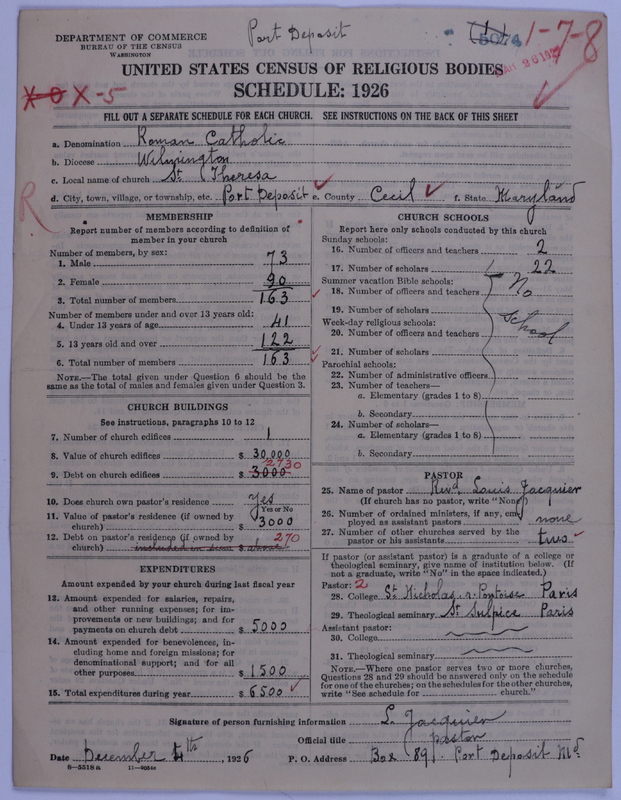 DEPARTMENT OF COMMERCE
BUREAU OF THE CENSUS
WASHINGTON
Port Deposit
5074
1-7-8
X-5
UNITED STATES CENSUS OF RELIGIOUS BODIES
SCHEDULE: 1926
FILL OUT A SEPARATE SCHEDULE FOR EACH CHURCH. SEE INSTRUCTIONS ON THE BACK OF THIS SHEET
a. Denomination Roman Catholic
b. Diocese Wilmington
c. Local name of church St Theresa
d. City, town, village, or township, etc. Port Deposit e. County Cecil f. State Maryland
R
MEMBERSHIP
Report number of members according to definition of
member in your church
Number of members, by sex:
1. Male 73
2. Female 90
3. Total number of members 163
Number of members under and over 13 years old:
4. Under 13 years of age 41
5. 13 years old and over 122
6. Total number of members 163
NOTE.—The total given under Question 6 should be the
same as the total of males and females given under Question 3.
CHURCH BUILDINGS
See instructions, paragraphs 10 to 12
7. Number of church edifices 1
8. Value of church edifices $ 30,000
2730
9. Debt on church edifices $ 3000
10. Does church own pastor's residence yes
Yes or No
11. Value of pastor's residence (if owned by
church) $ 3000
12. Debt on pastor's residence (if owned by 270
church) included in item $ above
EXPENDITURES
Amount expended by your church during last fiscal year
13. Amount expended for salaries, repairs,
and other running expenses; for im-
provements or new buildings; and for
payments on church debt $ 5000
14. Amount expended for benevolences, in-
cluding home and foreign missions; for
denominational support; and for all
other purposes $ 1500
15. Total expenditures during year $ 6500
CHURCH SCHOOLS
Report here only schools conducted by this church
Sunday schools:
16. Number of officers and teachers 2
17. Number of scholars 22
Summer vacation Bible schools:
18. Number of officers and teachers No
19. Number of scholars school
Week-day religious schools:
20. Number of officers and teachers
21. Number of scholars
Parochial schools:
22. Number of administrative officers
23. Number of teachers—
a. Elementary (grades 1 to 8)
b. Secondary
24. Number of scholars—
a. Elementary (grades 1 to 8)
b. Secondary
PASTOR
25. Name of pastor Revd. Louis Jacquier
(If church has no pastor, write "None")
26. Number of ordained ministers, if any, em-
ployed as assistant pastors none
27. Number of other churches served by the
pastor or his assistants two
If pastor (or assistant pastor) is a graduate of a college or
theological seminary, give name of institution below. (If
not a graduate, write "No" in the space indicated.)
Pastor: 2
28. College St Nicholas Pontoise Paris
29. Theological seminary St Sulpice Paris
Assistant pastor:
30. College
31. Theological seminary
NOTE.—Where one pastor serves two or more churches,
Questions 28 and 29 should be answered only on the schedule
for one of the churches; on the schedules for the other churches,
write "See schedule for church."
Signature of person furnishing information L. Jacquier
Official title pastor
Date December 4th, 1926 P. O. Address Box 89, Port Deposit Md.
8—5518 a